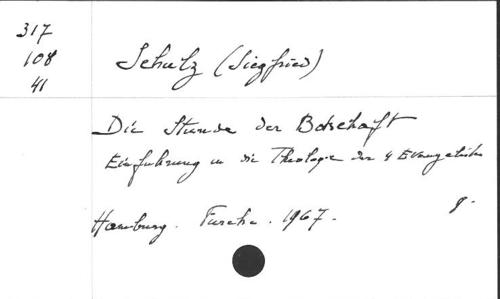 317
108
41
Schulz (Siegfried)
Die Stunde der Botschaft
Einfuhrung in die Theologie der 4 Evangelisten
Hamburg. Furche. 1967.
g.